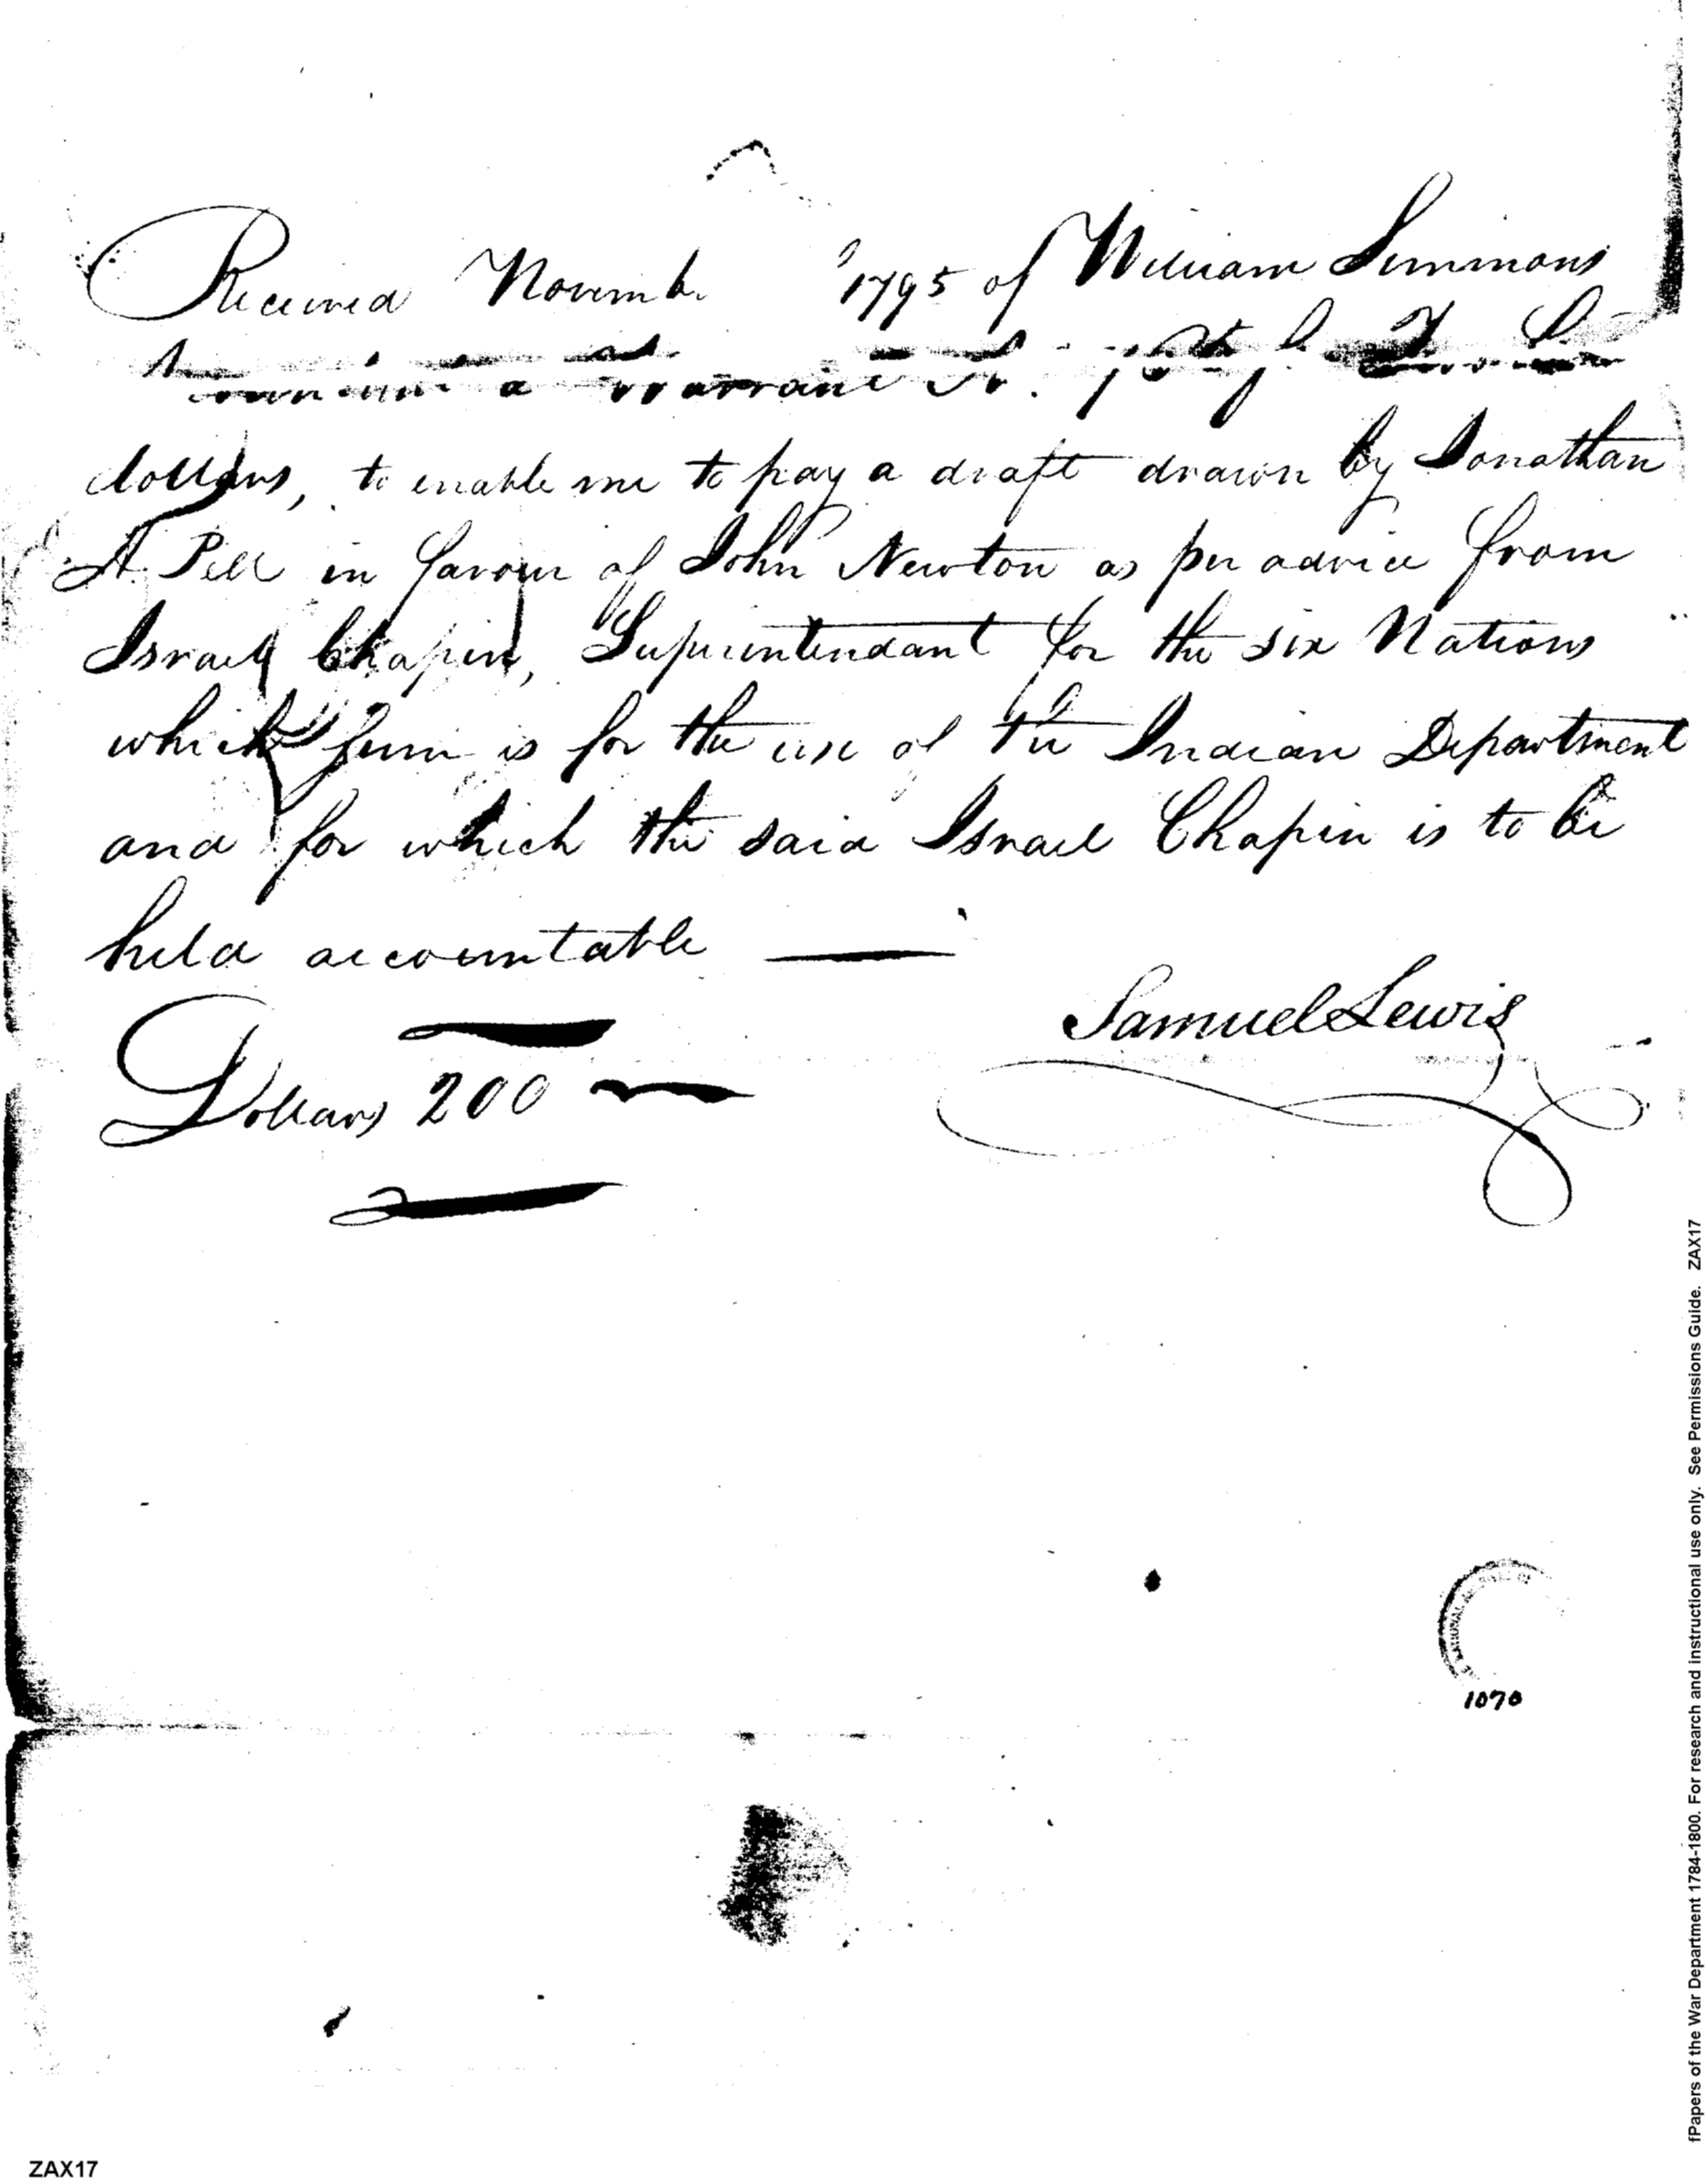 Received Novemb. 1795 of William Simmons
a Warrant
dollars, to enable me to pay a draft drawn by Jonathan
A. Pell in favour of John Newton as per advice from
Israel Chapin, Superintendant for the six Nations
which sum is for the use of the Indian Department
and for which the said Israel Chapin is to be
held accountable
Samuel Lewis
Dollars 200
1070
fPapers of the War Department 1784-1800. For research and instructional use only. See Permissions Guide. ZAX17
ZAX17